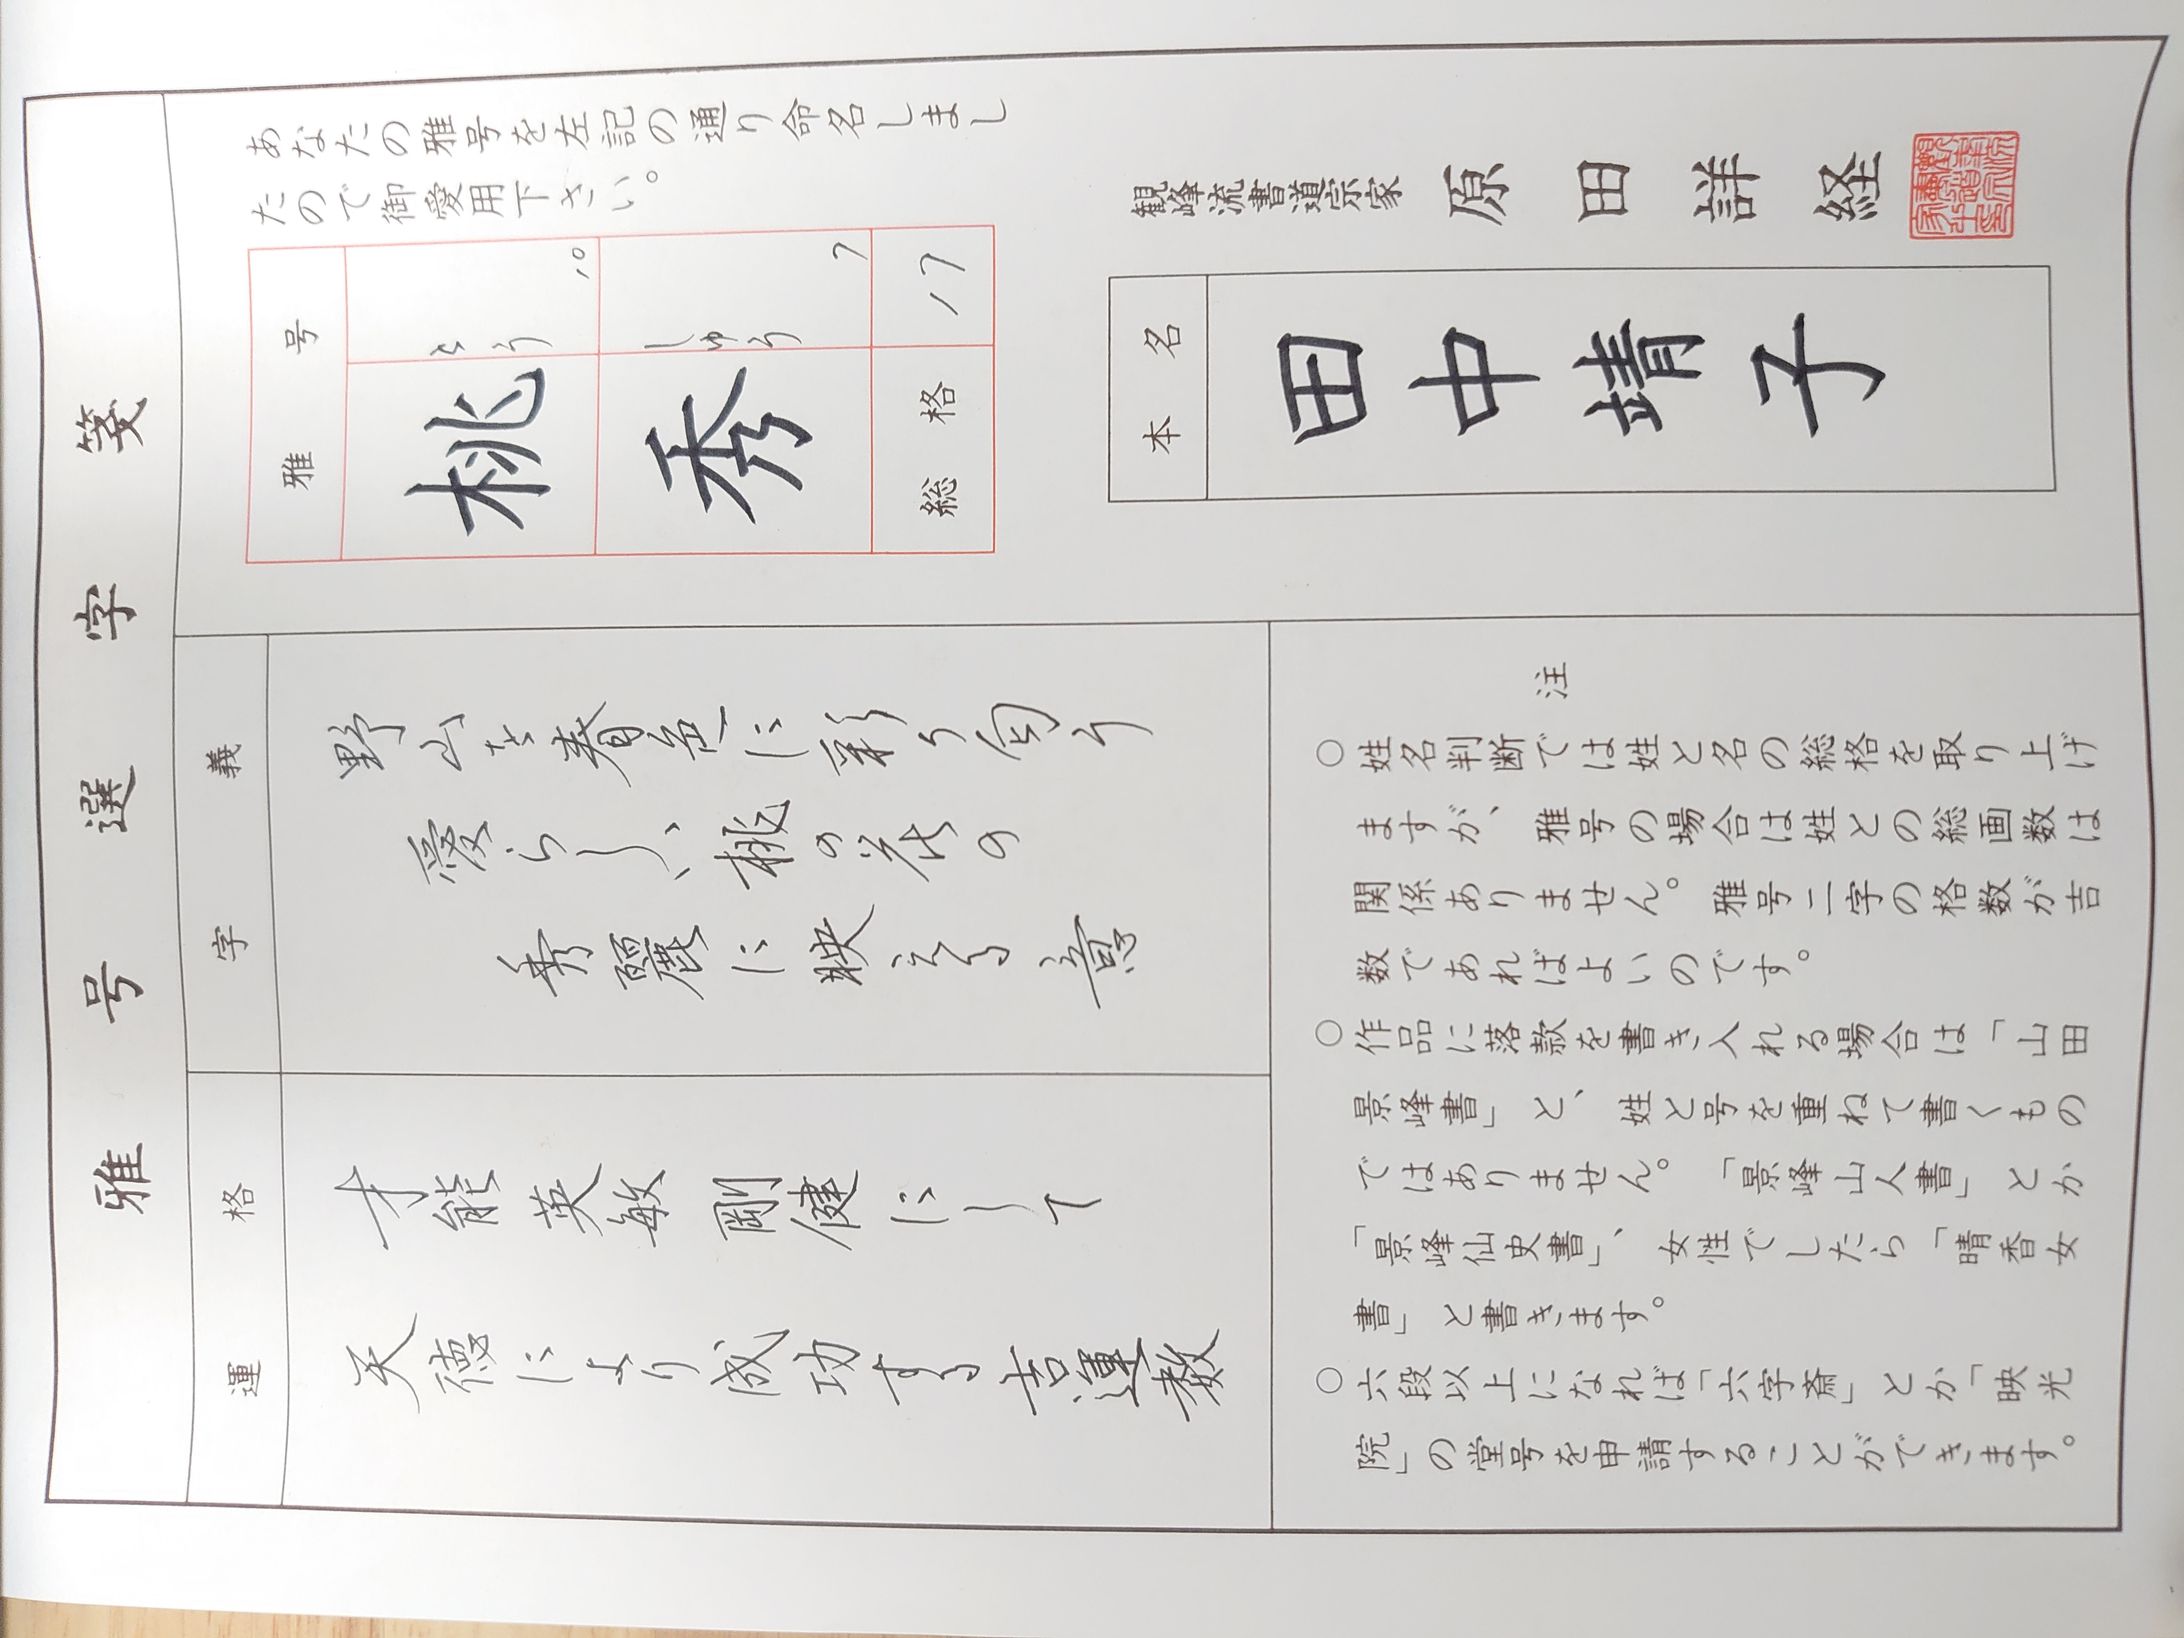 雅号選字箋
あなたの雅号を左記の通り命名しまし
たので御愛用下さい。
雅号
桃 とう 10
秀 しゅう 7
総格 17
観峰流書道宗家 原田詳経
本名
田中靖子
字義
野山を春色に彩り匂う
愛らしい桃の花の
秀麗に映える意
運格
才能英敏剛健にして
天徳により成功する吉運数
注
○姓名判断では姓と名の総格を取り上げ
ますが、雅号の場合は姓との総画数は
関係ありません。雅号二字の格数が吉
数であればよいのです。
○作品に落款を書き入れる場合は「山田
景峰書」と、姓と号を重ねて書くもの
ではありません。「景峰山人書」とか
「景峰仙史書」、女性でしたら「晴香女
書」と書きます。
○六段以上になれば「六字斎」とか「映光
院」の堂号を申請することができます。